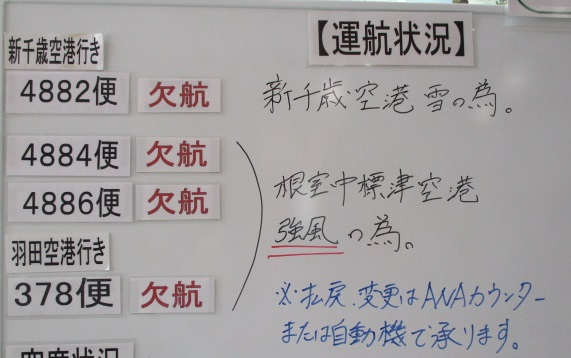 【運航状況】
新千歳空港行き
4882便 欠航 新千歳空港 雪の為。
4884便 欠航
4886便 欠航
根室中標津空港
強風の為。
羽田空港行き
378便 欠航
※払戻、変更はANAカウンター
または自動機で承ります。